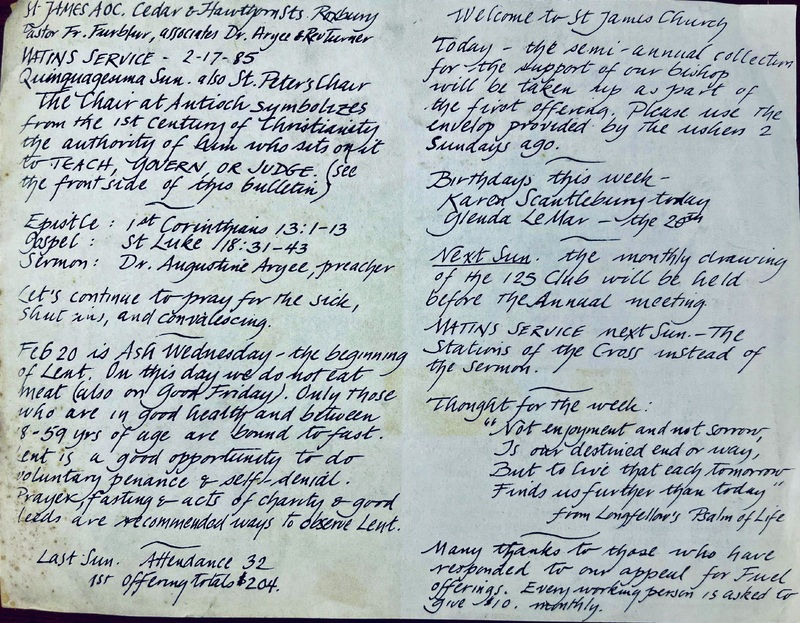 St JAMES AOC. Cedar & Hawthorn Sts. Roxbury
Pastor Fr. Fairblur, associates Dr. Aryee & Rev Turner
MATINS SERVICE - 2-17-85
Quinquagesima Sun. also St. Peter's Chair
The Chair at Antioch symbolizes
from the 1st century of Christianity
the authority of him who sits on it
to TEACH, GOVERN OR JUDGE. (see
the front side of this bulletin)
Epistle : 1st Corinthians 13:1-13
Gospel : St Luke 18:31-43
Sermon : Dr. Augustine Aryee, preacher
Let's continue to pray for the sick,
shut ins, and convalescing.
Feb 20 is Ash Wednesday - the beginning
of Lent. On this day we do not eat
meat (also on Good Friday). Only those
who are in good health and between
8-59 yrs of age are bound to fast.
Lent is a good opportunity to do
voluntary penance & self-denial.
Prayer, fasting & acts of charity & good
deeds are recommended ways to observe Lent.
Last Sun. Attendance 32
1st offering totals $204.
Welcome to St James Church
Today - the semi-annual collection
for the support of our bishop
will be taken up as part of
the first offering. Please use the
envelop provided by the ushers 2
Sundays ago.
Birthdays this week -
Karen Scantlebury today
Glenda LeMar - the 20th
Next Sun. the monthly drawing
of the 125 Club will be held
before the Annual meeting
MATINS SERVICE next Sun. - The
Stations of the Cross instead of
the Sermon.
Thought for the week :
"Not enjoyment and not sorrow,
Is our destined end or way,
But to live that each tomorrow
Finds us further than today"
from Longfellow's Psalm of Life
Many thanks to those who have
responded to our appeal for Fuel
offerings. Every working person is asked to
give $10. monthly.